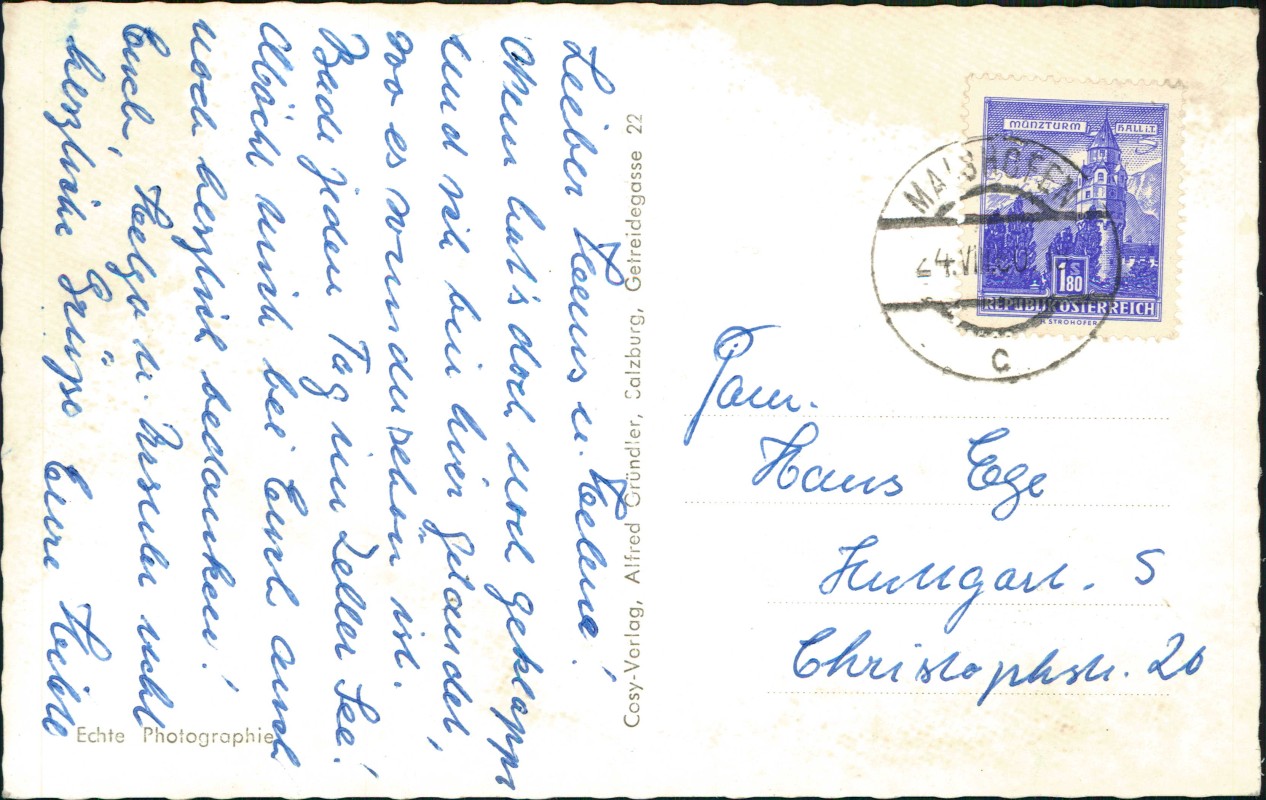 Lieber Hans u. Helene!
Nun hat's doch noch geklappt
und ich bin hier gelandet,
wo es wunderschön ist.
Bade jeden Tag im Zeller See!
Möcht mich bei Euch auch
noch herzlich bedanken!
Euch, Helga u. Ursula recht
herzliche Grüße Eure Heide
Echte Photographie
Cosy-Verlag, Alfred Gründler, Salzburg, Getreidegasse 22
MÜNZTURM HALL i.T.
S
1 80
REPUBLIK ÖSTERREICH
STROHOFER
MAISHOFEN
24.VII.60
c
Fam.
Hans Ege
Stuttgart. S
Christophstr. 26